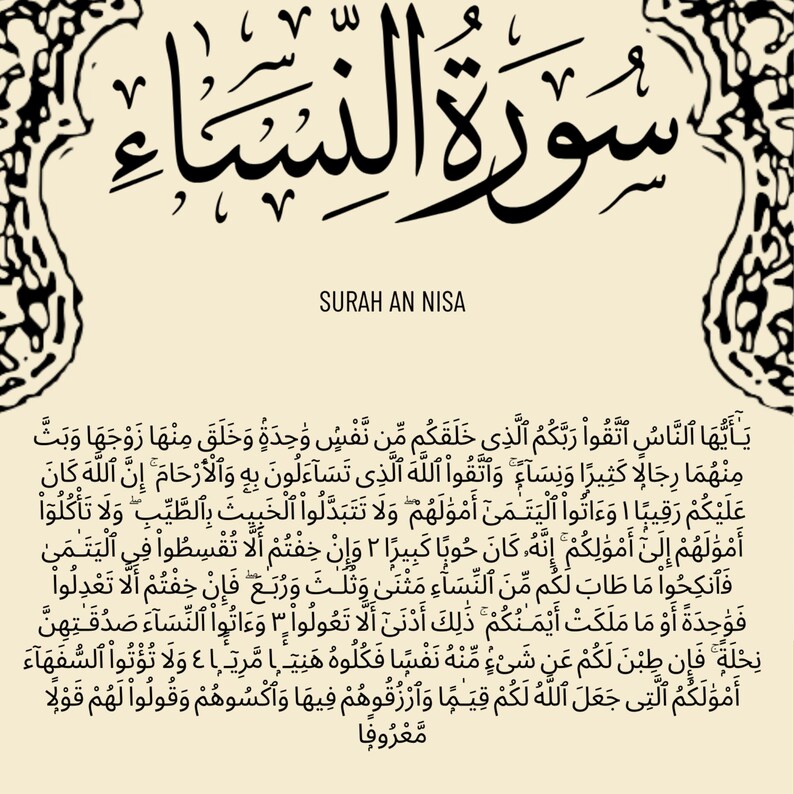 سُورَةُ النِّسَاءِ
SURAH AN NISA
يَـٰٓأَيُّهَا ٱلنَّاسُ ٱتَّقُوا۟ رَبَّكُمُ ٱلَّذِى خَلَقَكُم مِّن نَّفْسٍۢ وَٰحِدَةٍۢ وَخَلَقَ مِنْهَا زَوْجَهَا وَبَثَّ
مِنْهُمَا رِجَالًۭا كَثِيرًۭا وَنِسَآءًۭ ۚ وَٱتَّقُوا۟ ٱللَّهَ ٱلَّذِى تَسَآءَلُونَ بِهِۦ وَٱلْأَرْحَامَ ۚ إِنَّ ٱللَّهَ كَانَ
عَلَيْكُمْ رَقِيبًۭا ١ وَءَاتُوا۟ ٱلْيَتَـٰمَىٰٓ أَمْوَٰلَهُمْ ۖ وَلَا تَتَبَدَّلُوا۟ ٱلْخَبِيثَ بِٱلطَّيِّبِ ۖ وَلَا تَأْكُلُوٓا۟
أَمْوَٰلَهُمْ إِلَىٰٓ أَمْوَٰلِكُمْ ۚ إِنَّهُۥ كَانَ حُوبًۭا كَبِيرًۭا ٢ وَإِنْ خِفْتُمْ أَلَّا تُقْسِطُوا۟ فِى ٱلْيَتَـٰمَىٰ
فَٱنكِحُوا۟ مَا طَابَ لَكُم مِّنَ ٱلنِّسَآءِ مَثْنَىٰ وَثُلَـٰثَ وَرُبَـٰعَ ۖ فَإِنْ خِفْتُمْ أَلَّا تَعْدِلُوا۟
فَوَٰحِدَةً أَوْ مَا مَلَكَتْ أَيْمَـٰنُكُمْ ۚ ذَٰلِكَ أَدْنَىٰٓ أَلَّا تَعُولُوا۟ ٣ وَءَاتُوا۟ ٱلنِّسَآءَ صَدُقَـٰتِهِنَّ
نِحْلَةًۭ ۚ فَإِن طِبْنَ لَكُمْ عَن شَىْءٍۢ مِّنْهُ نَفْسًۭا فَكُلُوهُ هَنِيٓـًۭٔا مَّرِيٓـًۭٔا ٤ وَلَا تُؤْتُوا۟ ٱلسُّفَهَآءَ
أَمْوَٰلَكُمُ ٱلَّتِى جَعَلَ ٱللَّهُ لَكُمْ قِيَـٰمًۭا وَٱرْزُقُوهُمْ فِيهَا وَٱكْسُوهُمْ وَقُولُوا۟ لَهُمْ قَوْلًۭا
مَّعْرُوفًۭا